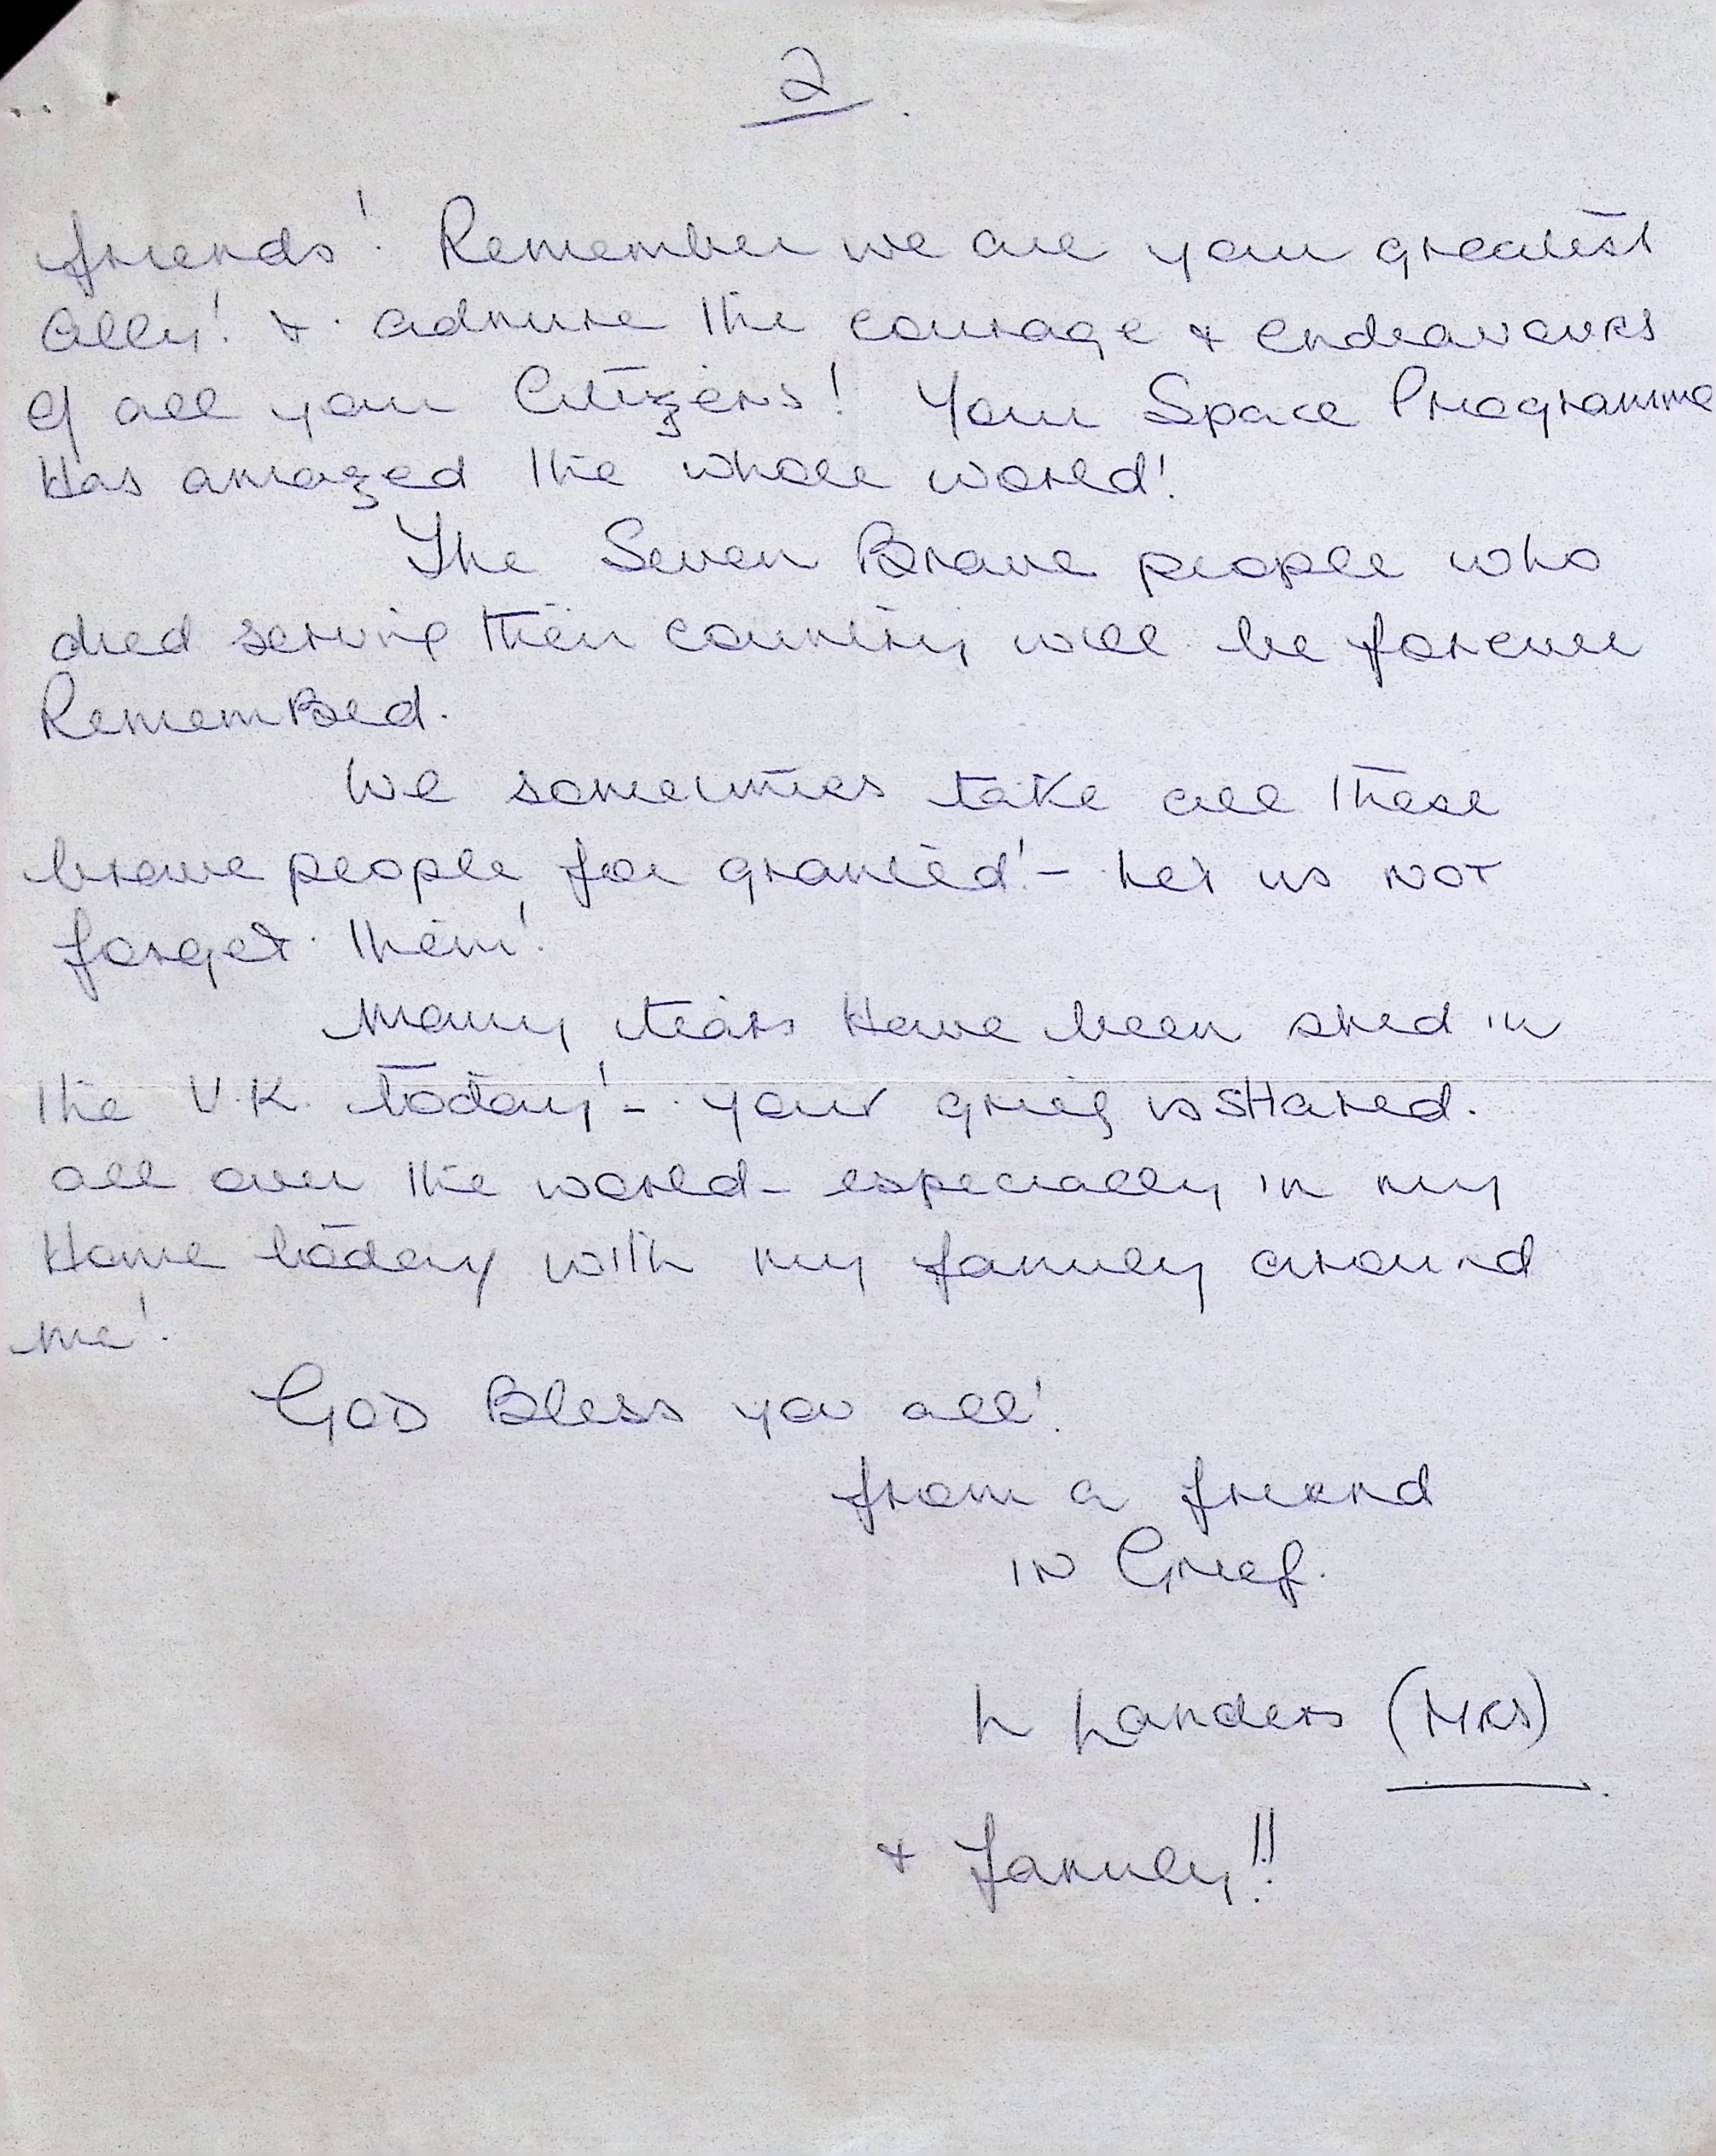 2.
friends! Remember we are your greatest
Ally! & admire the courage & endeavours
of all your Citizens! Your Space Programme
Has amazed the whole world!
The Seven Brave people who
died serving their country will be forever
RememBed.
We sometimes take all these
brave people for granted! - Let us NOT
forget them!
Many tears Have been shed in
the U.K. today! - your grief is sHared.
all over the world - especially in my
Home today with my family around
me!
GOD Bless you all!
from a friend
IN Grief.
L Landers (MRS)
& family!!